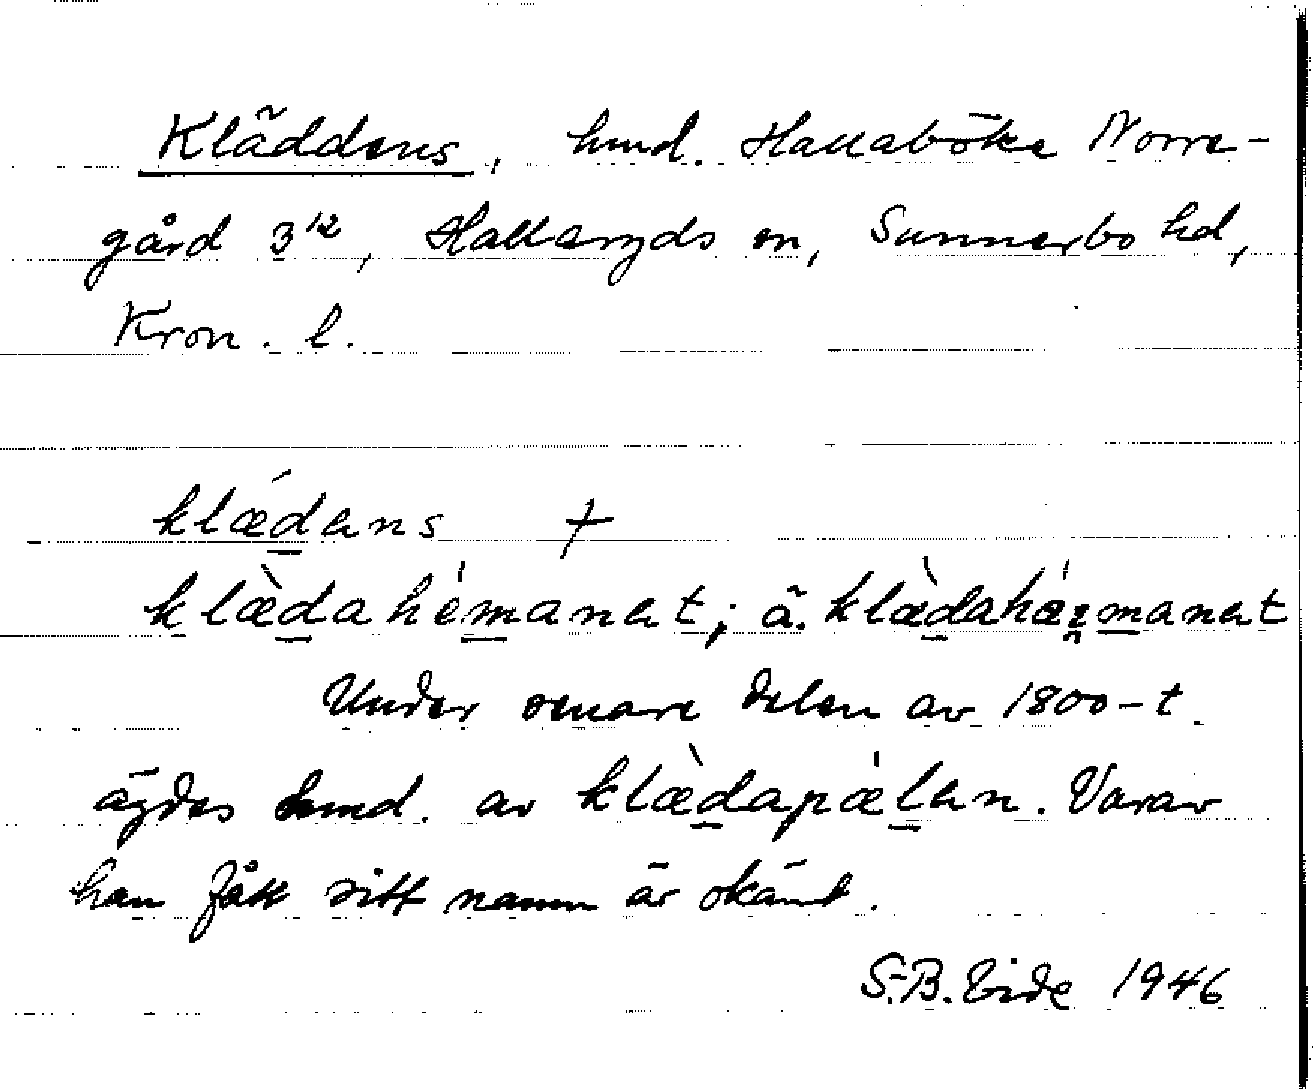 Kläddens, hmd. Hallaböke Norre-
gård 3¹², Hallaryds sn, Sunnerbo hd,
Kron. l.
klǽdans +
klæ̀dahémanat; ä. klæ̀dahæʓmanat
Under senare delen av 1800-t
ägdes hmd. av klæ̀dapælan. Varav
han fått sitt namn är okänt.
S.-B. Vide 1946